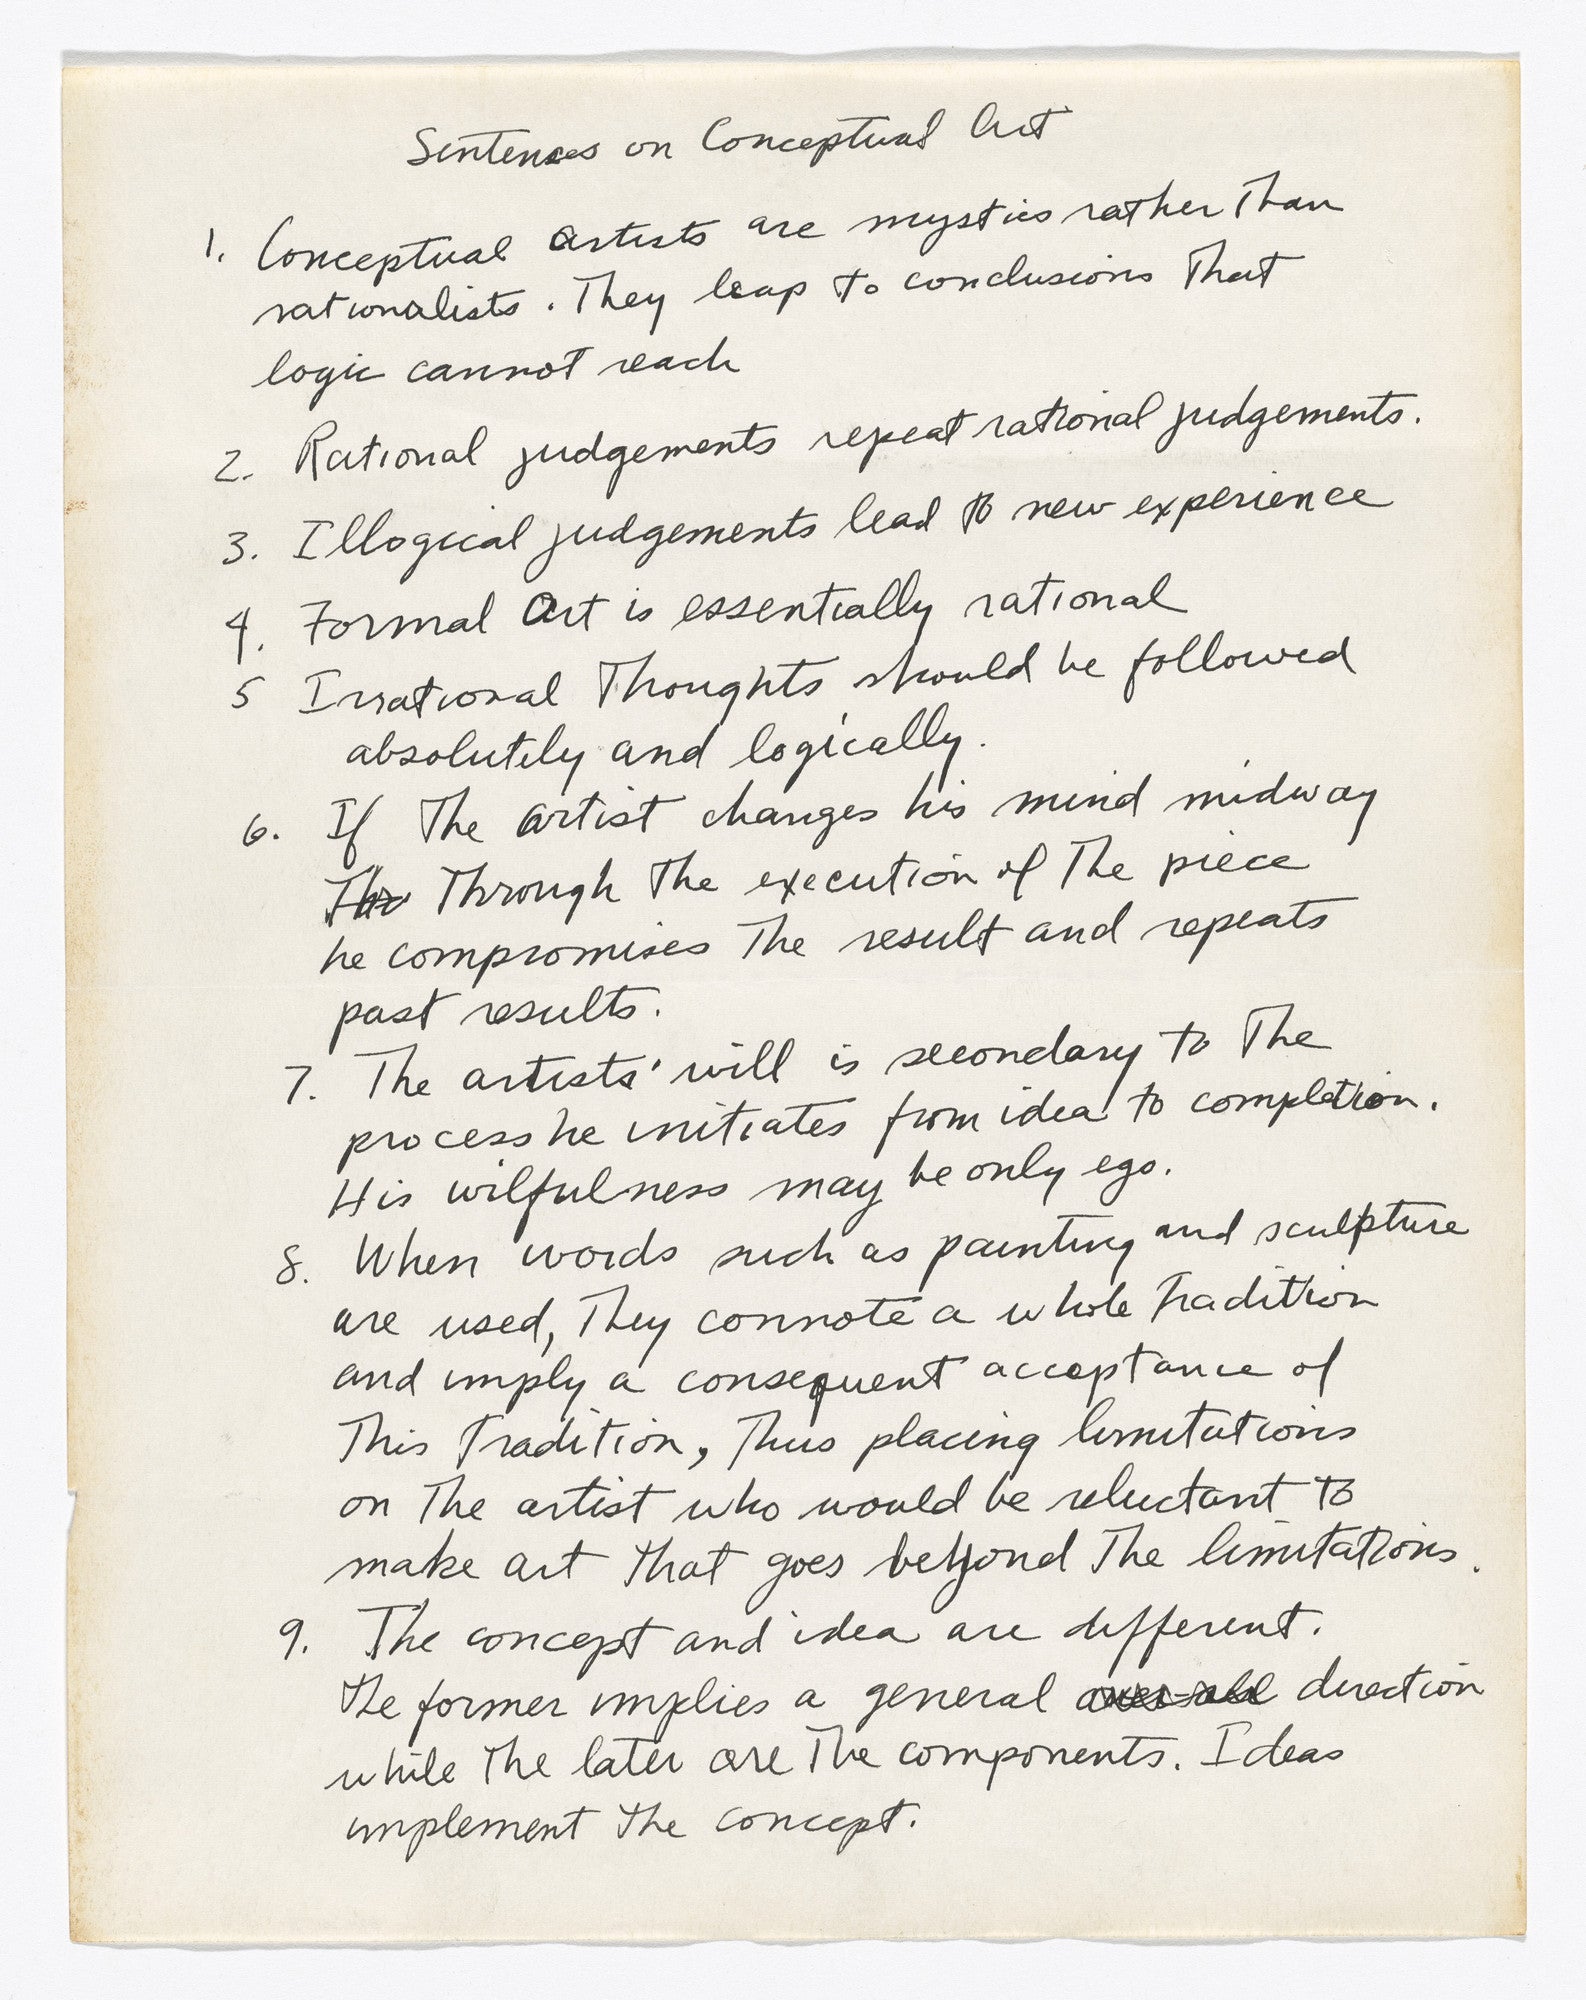 Sentences on Conceptual Art
1. Conceptual artists are mystics rather than
rationalists. They leap to conclusions that
logic cannot reach
2. Rational judgements repeat rational judgements.
3. Illogical judgements lead to new experience
4. Formal Art is essentially rational
5 Irrational Thoughts should be followed
absolutely and logically.
6. If the artist changes his mind midway
Thr Through the execution of the piece
he compromises the result and repeats
past results.
7. The artists' will is secondary to the
process he initiates from idea to completion.
His wilfulness may be only ego.
8. When words such as painting and sculpture
are used, They connote a whole Tradition
and imply a consequent acceptance of
This Tradition, Thus placing limitations
on The artist who would be reluctant to
make art that goes beyond The limitations.
9. The concept and idea are different.
The former implies a general over-all direction
while the later are the components. Ideas
implement the concept.